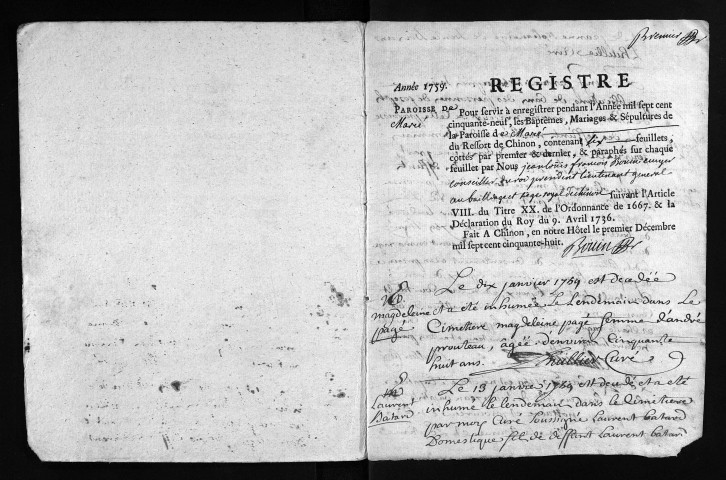 Premier
Année 1759. REGISTRE
PAROISSE DE
Marié
Pour servir à enregistrer pendant l'Année mil sept cent
cinquante-neuf, les Baptêmes, Mariages & Sépultures de
la Paroisse de Marié
du Ressort de Chinon, contenant six feuillets,
cottés par premier & dernier, & paraphés sur chaque
feuillet par Nous jean louis françois Bouin ecuyer
conseiller du roi president lieutenant general
au bailliage et siege royal de chinon suivant l'Article
VIII. du Titre XX. de l'Ordonnance de 1667. & la
Déclaration du Roy du 9. Avril 1736.
Fait A Chinon, en notre Hôtel le premier Décembre
mil sept cent cinquante-huit. Bouin
magdeleine
pagé
Le dix janvier 1759 est decedée
et a été inhumée le lendemain dans le
Cimetiere magdeleine pagé femme d'andré
prouteau, agée denviron Cinquante
huit ans. Curé
Laurent
Batard
Le 13 janvier 1759 est decedé et a été
inhumé le lendemain dans le Cimetiere
par moy Curé Soussigné Laurent batard
Domestique fils de deffunt Laurent batard